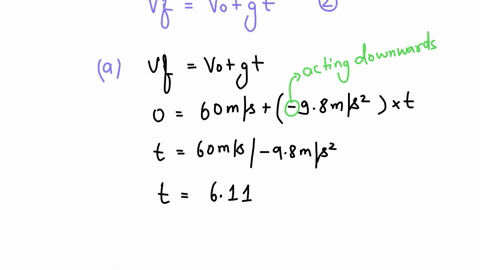 Vf = Vo + gt ②
(a) Vf = Vo + gt
acting downwards
0 = 60m/s + (-9.8m/s² ) × t
t = 60m/s / -9.8m/s²
t = 6.11